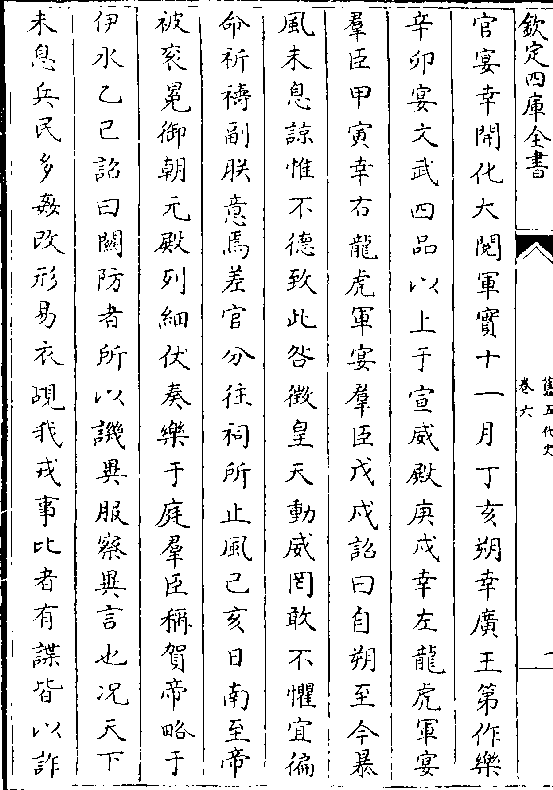 欽定四庫全書
舊五代史
卷六
一
官宴幸開化大閱軍實十一月丁亥朔幸廣王第作樂
辛卯宴文武四品以上于宣威殿庚戌幸左龍虎軍宴
羣臣甲寅幸右龍虎軍宴羣臣戊戌詔曰自朔至今暴
風未息諒惟不德致此咎徵皇天動威罔敢不懼宜徧
命祈禱副朕意焉差官分往祠所止風己亥日南至帝
被衮冕御朝元殿列細仗奏樂于庭羣臣稱賀帝畋于
伊水乙巳詔曰關防者所以譏異服察異言也况天下
未息兵民多姦改形易衣覘我戎事比者有諜皆以詐